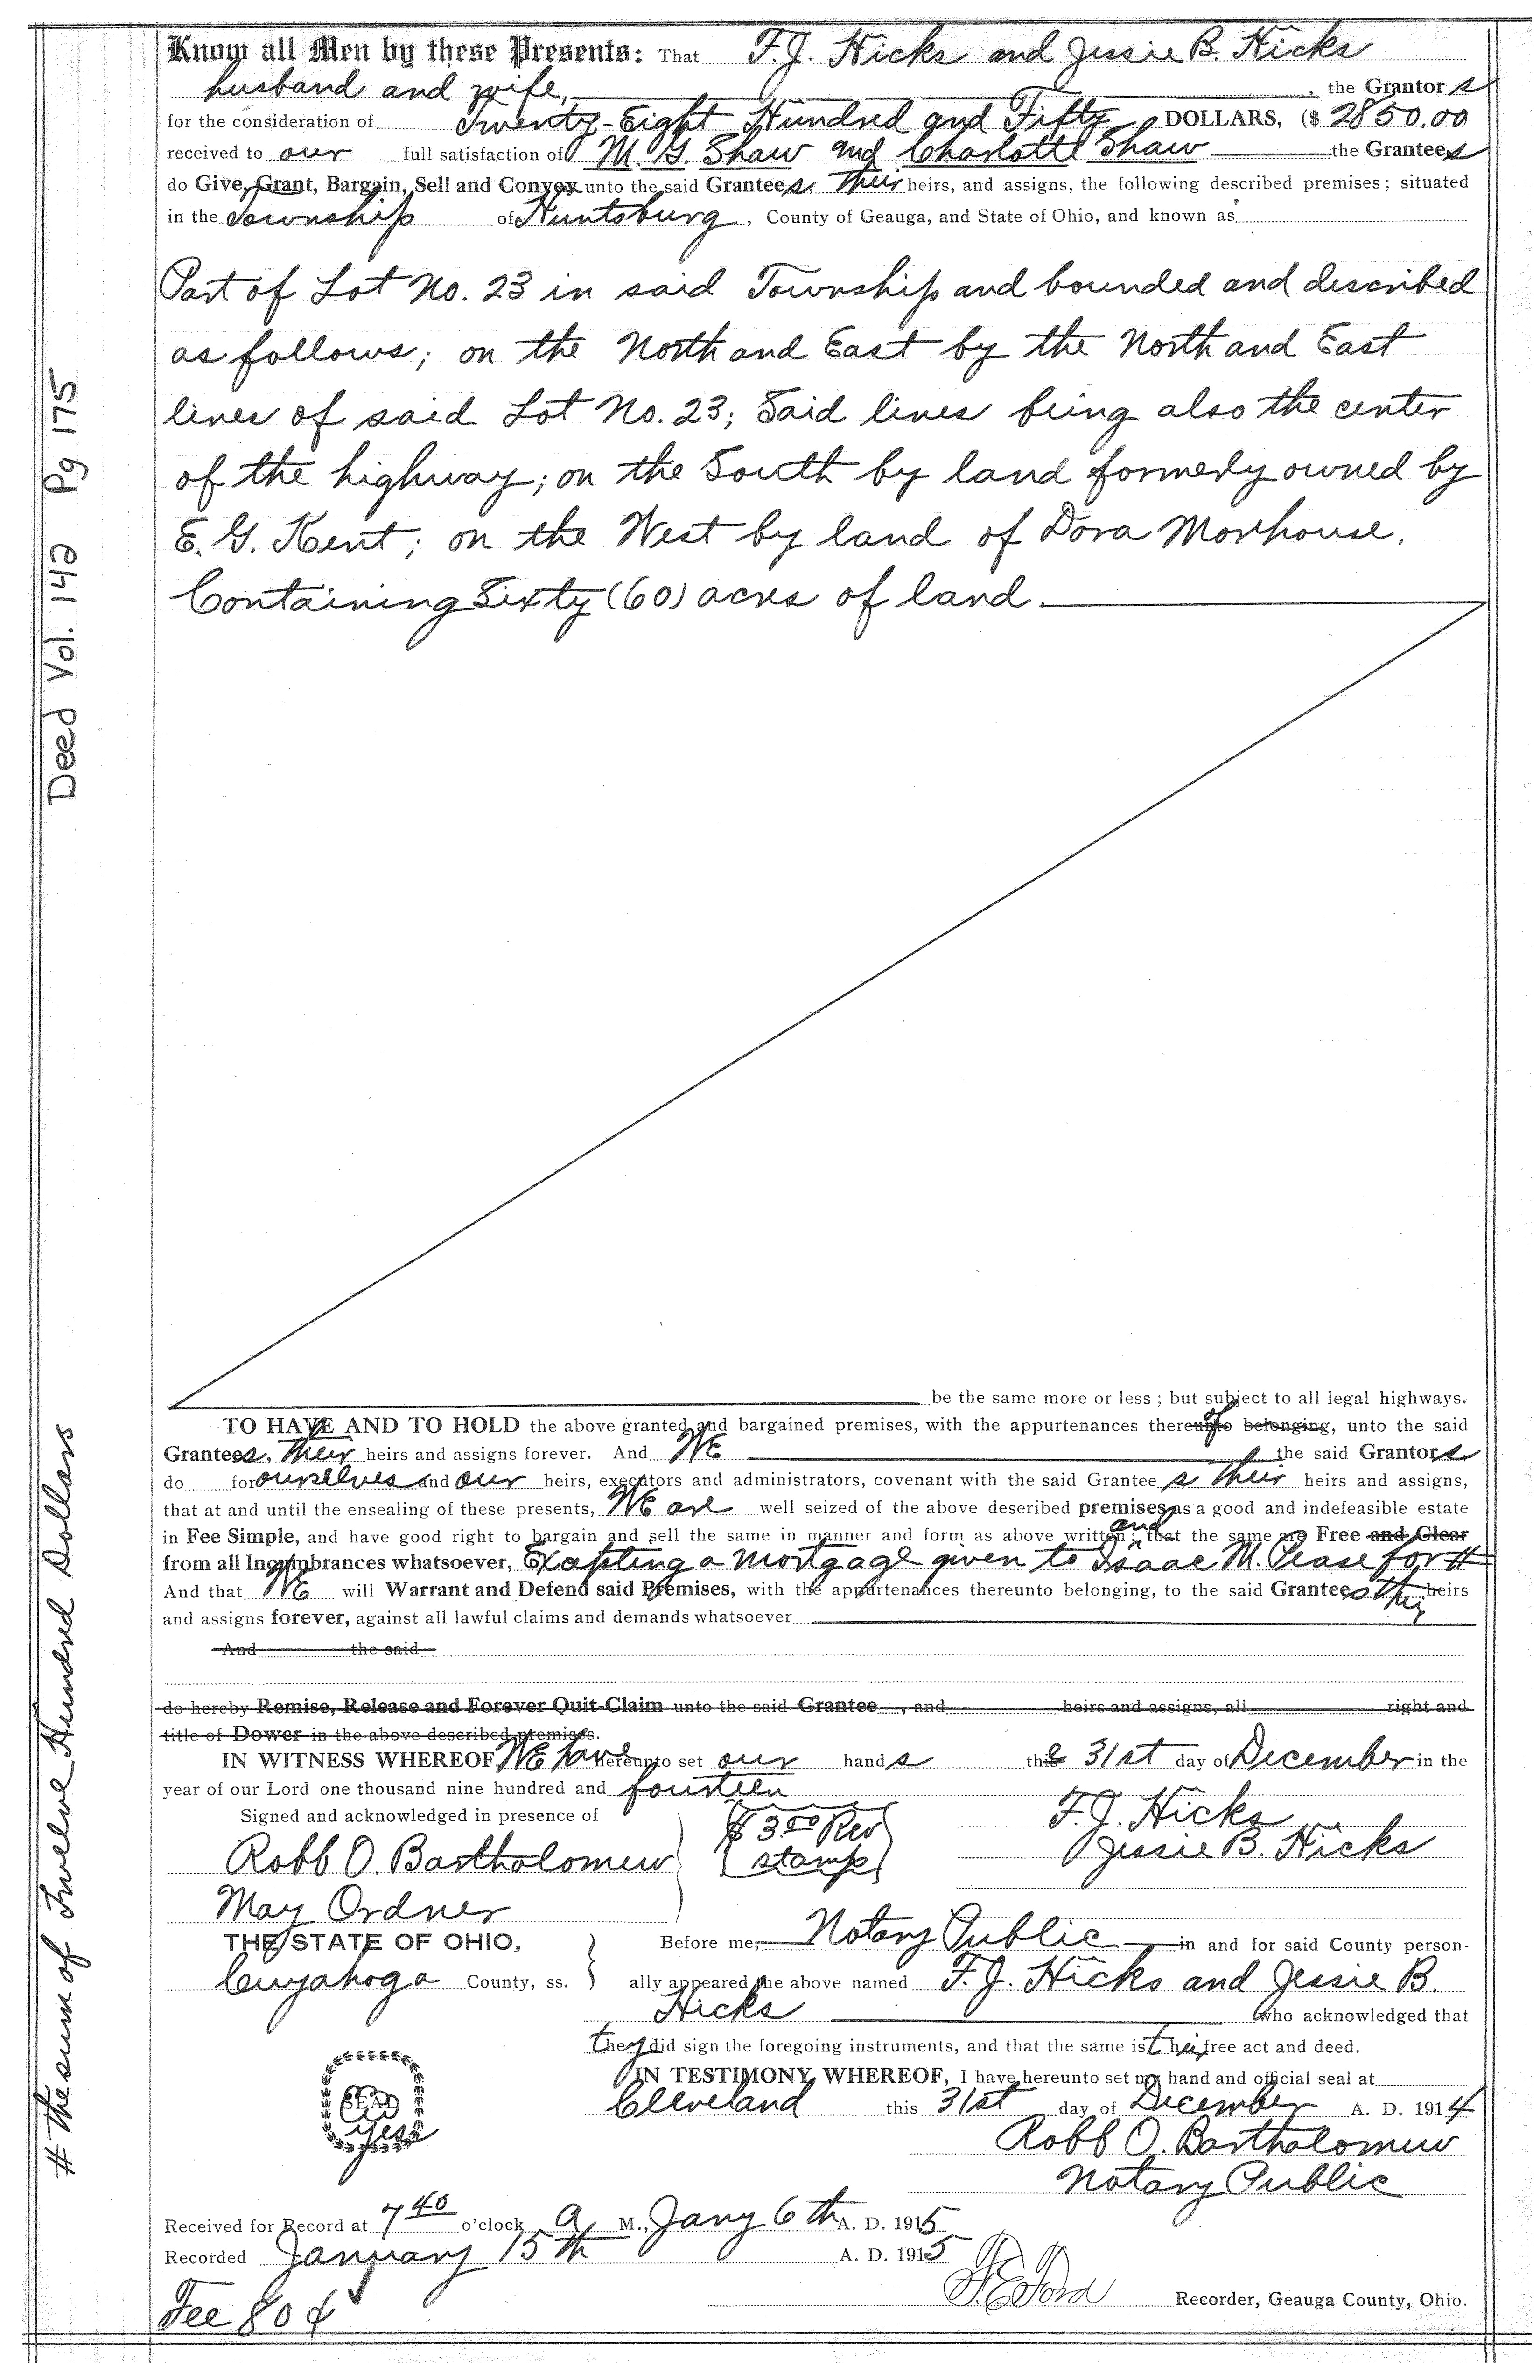 Know all Men by these Presents: That F.J. Hicks and Jessie B. Hicks
husband and wife, , the Grantor s
for the consideration of Twenty-Eight Hundred and Fifty DOLLARS, ($ 2850.00
received to our full satisfaction of M. G. Shaw and Charlotte Shaw the Grantees
do Give, Grant, Bargain, Sell and Convey unto the said Grantees, their heirs, and assigns, the following described premises; situated
in the Township of Huntsburg, County of Geauga, and State of Ohio, and known as
Part of Lot No. 23 in said Township and bounded and described
as follows; on the North and East by the North and East
lines of said Lot No. 23; Said lines being also the center
of the highway; on the South by land formerly owned by
E. G. Kent; on the West by land of Dora Morhouse.
Containing Sixty (60) acres of land.
be the same more or less; but subject to all legal highways.
TO HAVE AND TO HOLD the above granted and bargained premises, with the appurtenances thereunto of belonging, unto the said
Grantees, their heirs and assigns forever. And WE the said Grantors
do for ourselves and our heirs, executors and administrators, covenant with the said Grantee s their heirs and assigns,
that at and until the ensealing of these presents, WE are well seized of the above deseribed premises, as a good and indefeasible estate
in Fee Simple, and have good right to bargain and sell the same in manner and form as above written; and that the same are Free and Clear
from all Incumbrances whatsoever, Excepting a mortgage given to Isaac M. Pease for #
And that WE will Warrant and Defend said Premises, with the appurtenances thereunto belonging, to the said Grantees their heirs
and assigns forever, against all lawful claims and demands whatsoever
And the said
do hereby Remise, Release and Forever Quit-Claim unto the said Grantee , and heirs and assigns, all right and
title of Dower in the above described premises.
IN WITNESS WHEREOF, WE have hereunto set our hand s the 31st day of December in the
year of our Lord one thousand nine hundred and fourteen
Signed and acknowledged in presence of
$3.00 Rev stamp
F.J. Hicks
Jessie B. Hicks
Robb O. Bartholomew
May Ordner
THE STATE OF OHIO,
Cuyahoga County, ss.
Before me, Notary Public in and for said County person-
ally appeared the above named F. J. Hicks and Jessie B.
Hicks who acknowledged that
they did sign the foregoing instruments, and that the same is their free act and deed.
IN TESTIMONY WHEREOF, I have hereunto set my hand and official seal at
Cleveland this 31st day of December A. D. 1914
SEAL
yes
Robb O. Bartholomew
Notary Public
Received for Record at 7 40 o'clock a M., Jany 6th A. D. 1915
Recorded January 15th A. D. 1915
F.E. Ford Recorder, Geauga County, Ohio.
Fee 80¢
Deed Vol. 142 Pg 175
# the sum of Twelve Hundred Dollars